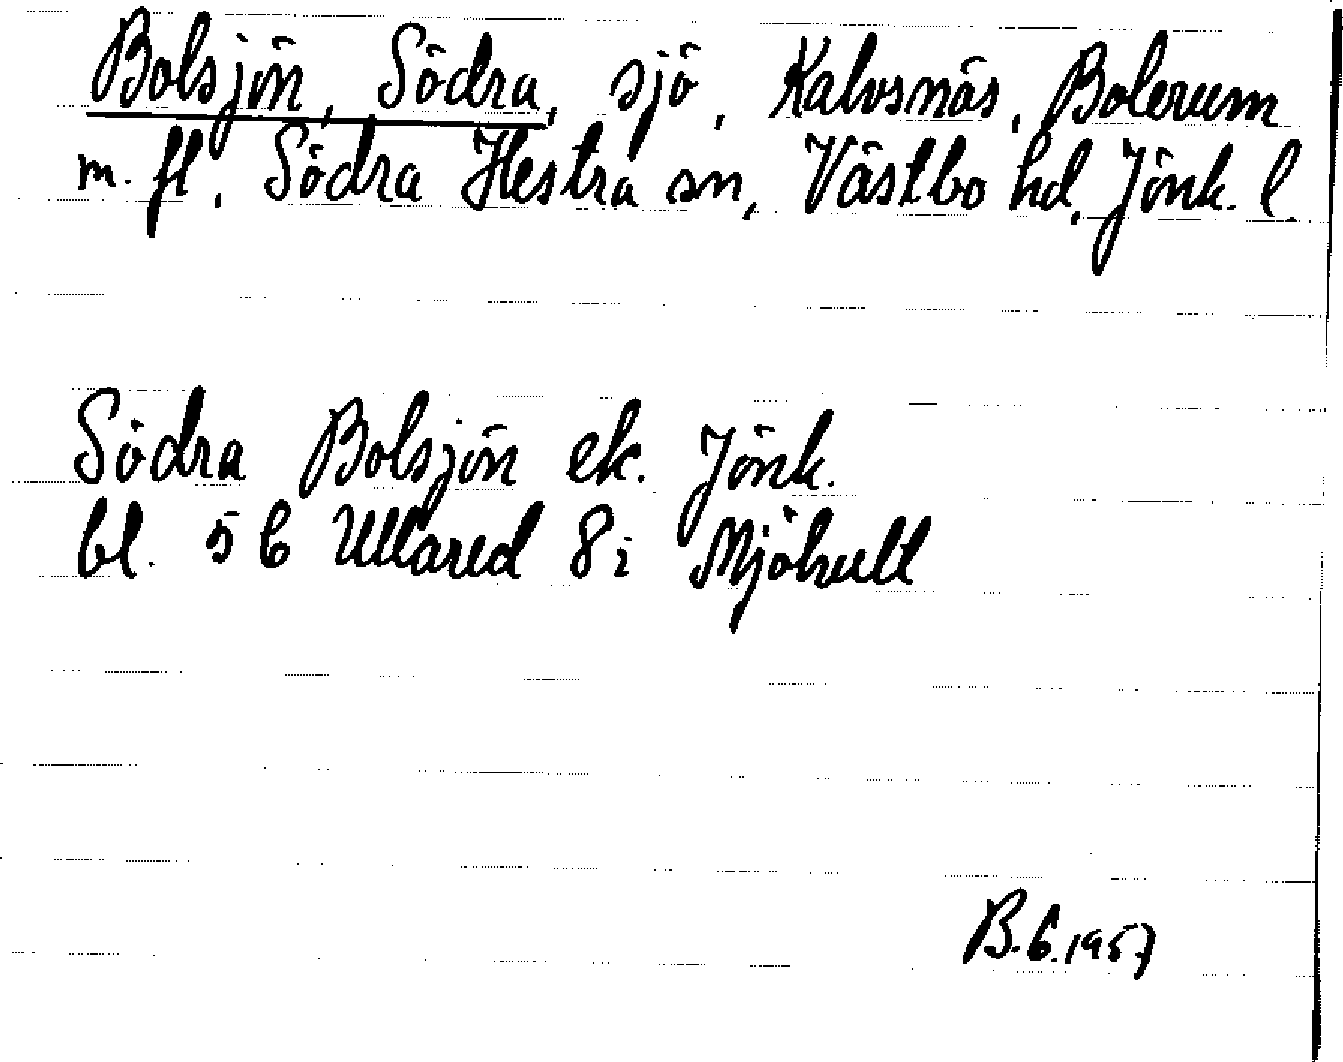 Bolsjön, Södra, sjö, Kalvsnäs, Bolerum
m. fl, Södra Hestra sn, Västbo hd, Jönk. l.
Södra Bolsjön ek. Jönk.
bl. 5 C Ullared 8i Mjöhult
B.G.1957